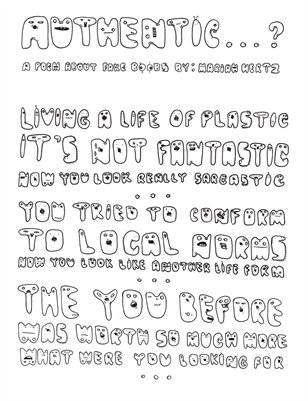 AUTHENTIC...?
A POEM ABOUT FAKE BOOBS BY: MARIAH HERTZ
LIVING A LIFE OF PLASTIC
IT'S NOT FANTASTIC
NOW YOU LOOK REALLY SARCASTIC
...
YOU TRIED TO CONFORM
TO LOCAL NORMS
NOW YOU LOOK LIKE ANOTHER LIFE FORM
...
THE YOU BEFORE
WAS WORTH SO MUCH MORE
WHAT WERE YOU LOOKING FOR
...